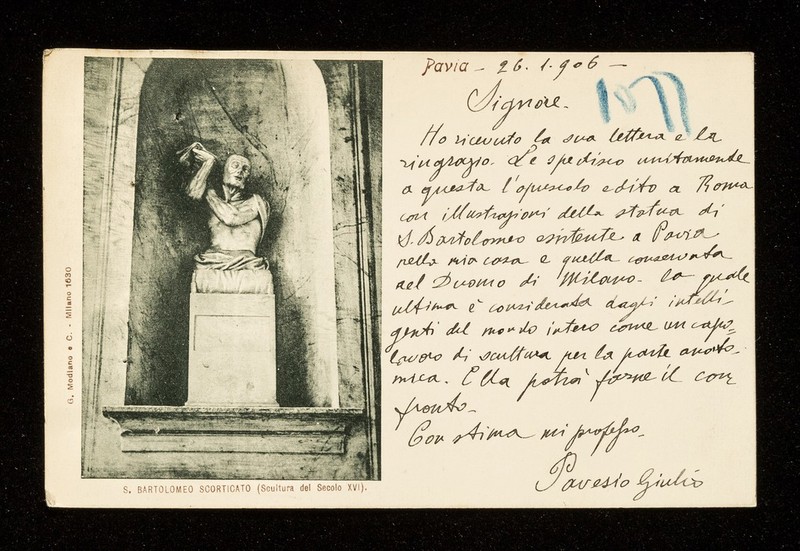 Pavia - 26.1.906 -
1077
Signore.
Ho ricevuto la sua lettera e la
ringrazio. Le spedisco unitamente
a questa l'opuscolo edito a Roma
con illustrazioni della statua di
S. Bartolomeo esistente a Pavia
nella mia casa e quella conservata
nel Duomo di Milano - la quale
ultima è considerata dagli intelli-
genti del mondo intero come un capo=
lavoro di scultura per la parte anato-
mica. Ella potrà farne il con
fronto -
Con stima mi professo.
Pavesio Giulio
G. Modiano e C. - Milano 1630
S. BARTOLOMEO SCORTICATO (Scultura del Secolo XVI).